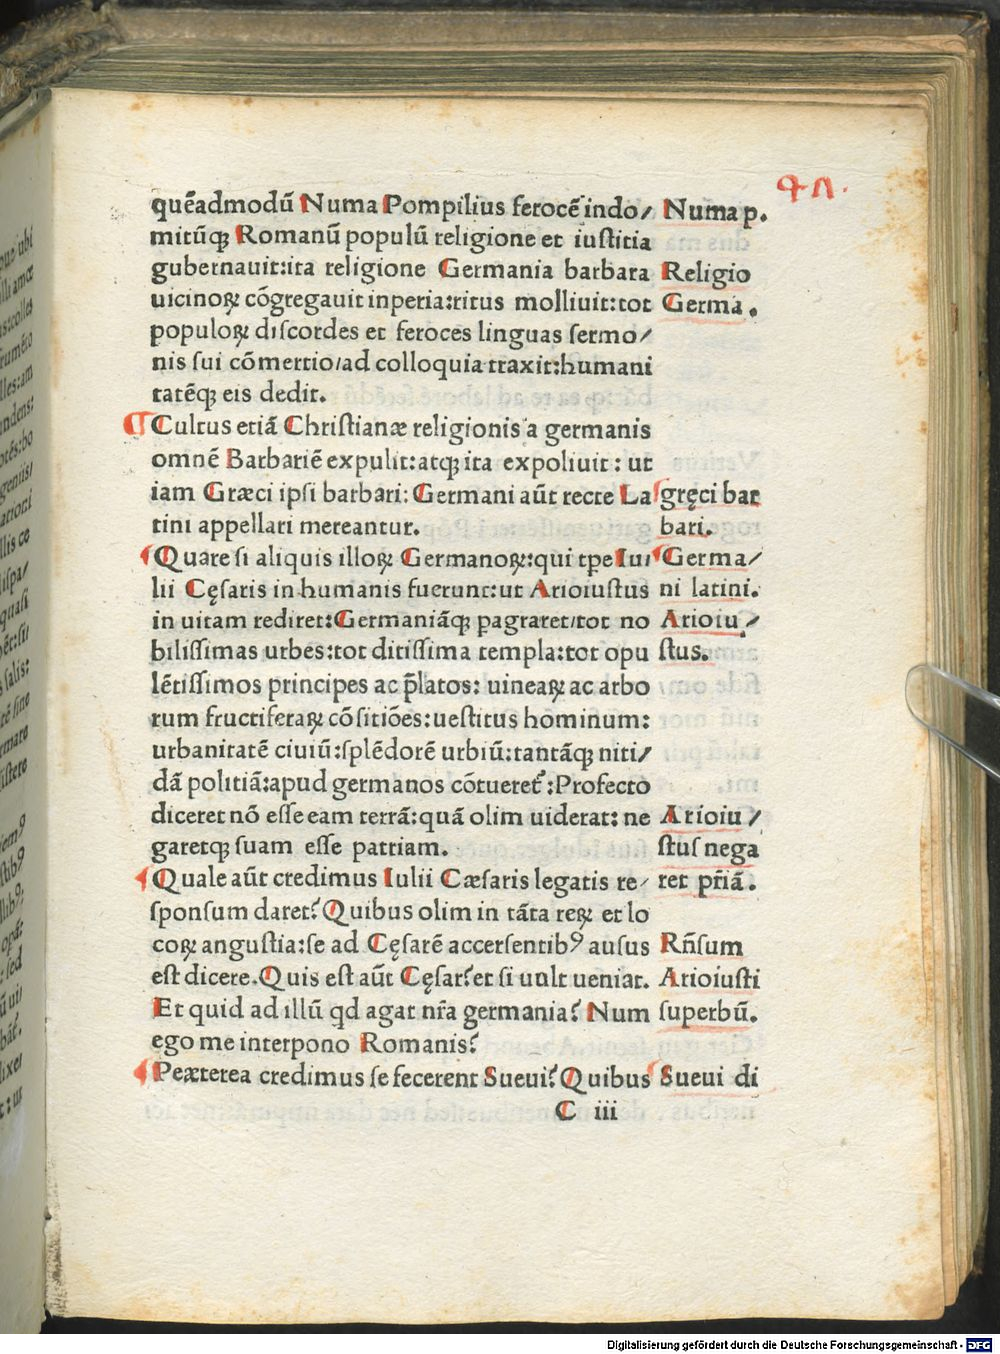 quēadmodū Numa Pompilius ferocē indo/ Numa p.
mitūq̢ Romanū populū religione et iustitia
gubernauit:ita religione Germania barbara Religio
uicinoꝝ cōgregauit inperia:ritus molliuit:tot Germa.
populoꝝ discordes et feroces linguas sermo/
nis sui cōmertio/ad colloquia traxit:humani
tatēq̢ eis dedit.
¶ Cultus etiā Christianæ religionis a germanis
omnē Barbariē expulit:atq̢ ita expoliuit : ut
iam Græci ipsi barbari: Germani aūt recte La gręci bar
tini appellari mereantur. bari.
Quare si aliquis illoꝝ Germanoꝝ:qui tꝑe Iui Germa/
lii Cęsaris in humanis fuerunt:ut Arioiustus ni latini.
in uitam rediret:Germaniāq̢ pagraret/tot no Arioiu /
bilissimas urbes:tot ditissima templa:tot opu stus.
lētissimos principes ac p̄latos: uineaꝝ ac arbo
rum fructiferaꝝ cōsitiōes:uestitus hominum:
urbanitatē ciuiū:splēdorē urbiū:tantāq̢ niti/
dā politiā:apud germanos cōtueret᷑:Profecto
diceret nō esse eam terrā:quā olim uiderat: ne Arioiu /
garetq̢ suam esse patriam. stus nega
Quale aūt credimus Iulii Cæsaris legatis re/ ret pr̄iā.
sponsum daret? Quibus olim in tāta reꝝ et lo
coꝝ angustia:se ad Cęsarē accersentibꝰ ausus Rn̄sum
est dicere. Quis est aūt Cęsar?et si uult ueniat. Arioiusti
Et quid ad illū qd agat nr̄a germania? Num superbū.
ego me interpono Romanis?
Peæterea credimus se fecerent Sueui? Quibus Sueui di
C iii
Digitalisierung gefördert durch die Deutsche Forschungsgemeinschaft - DFG